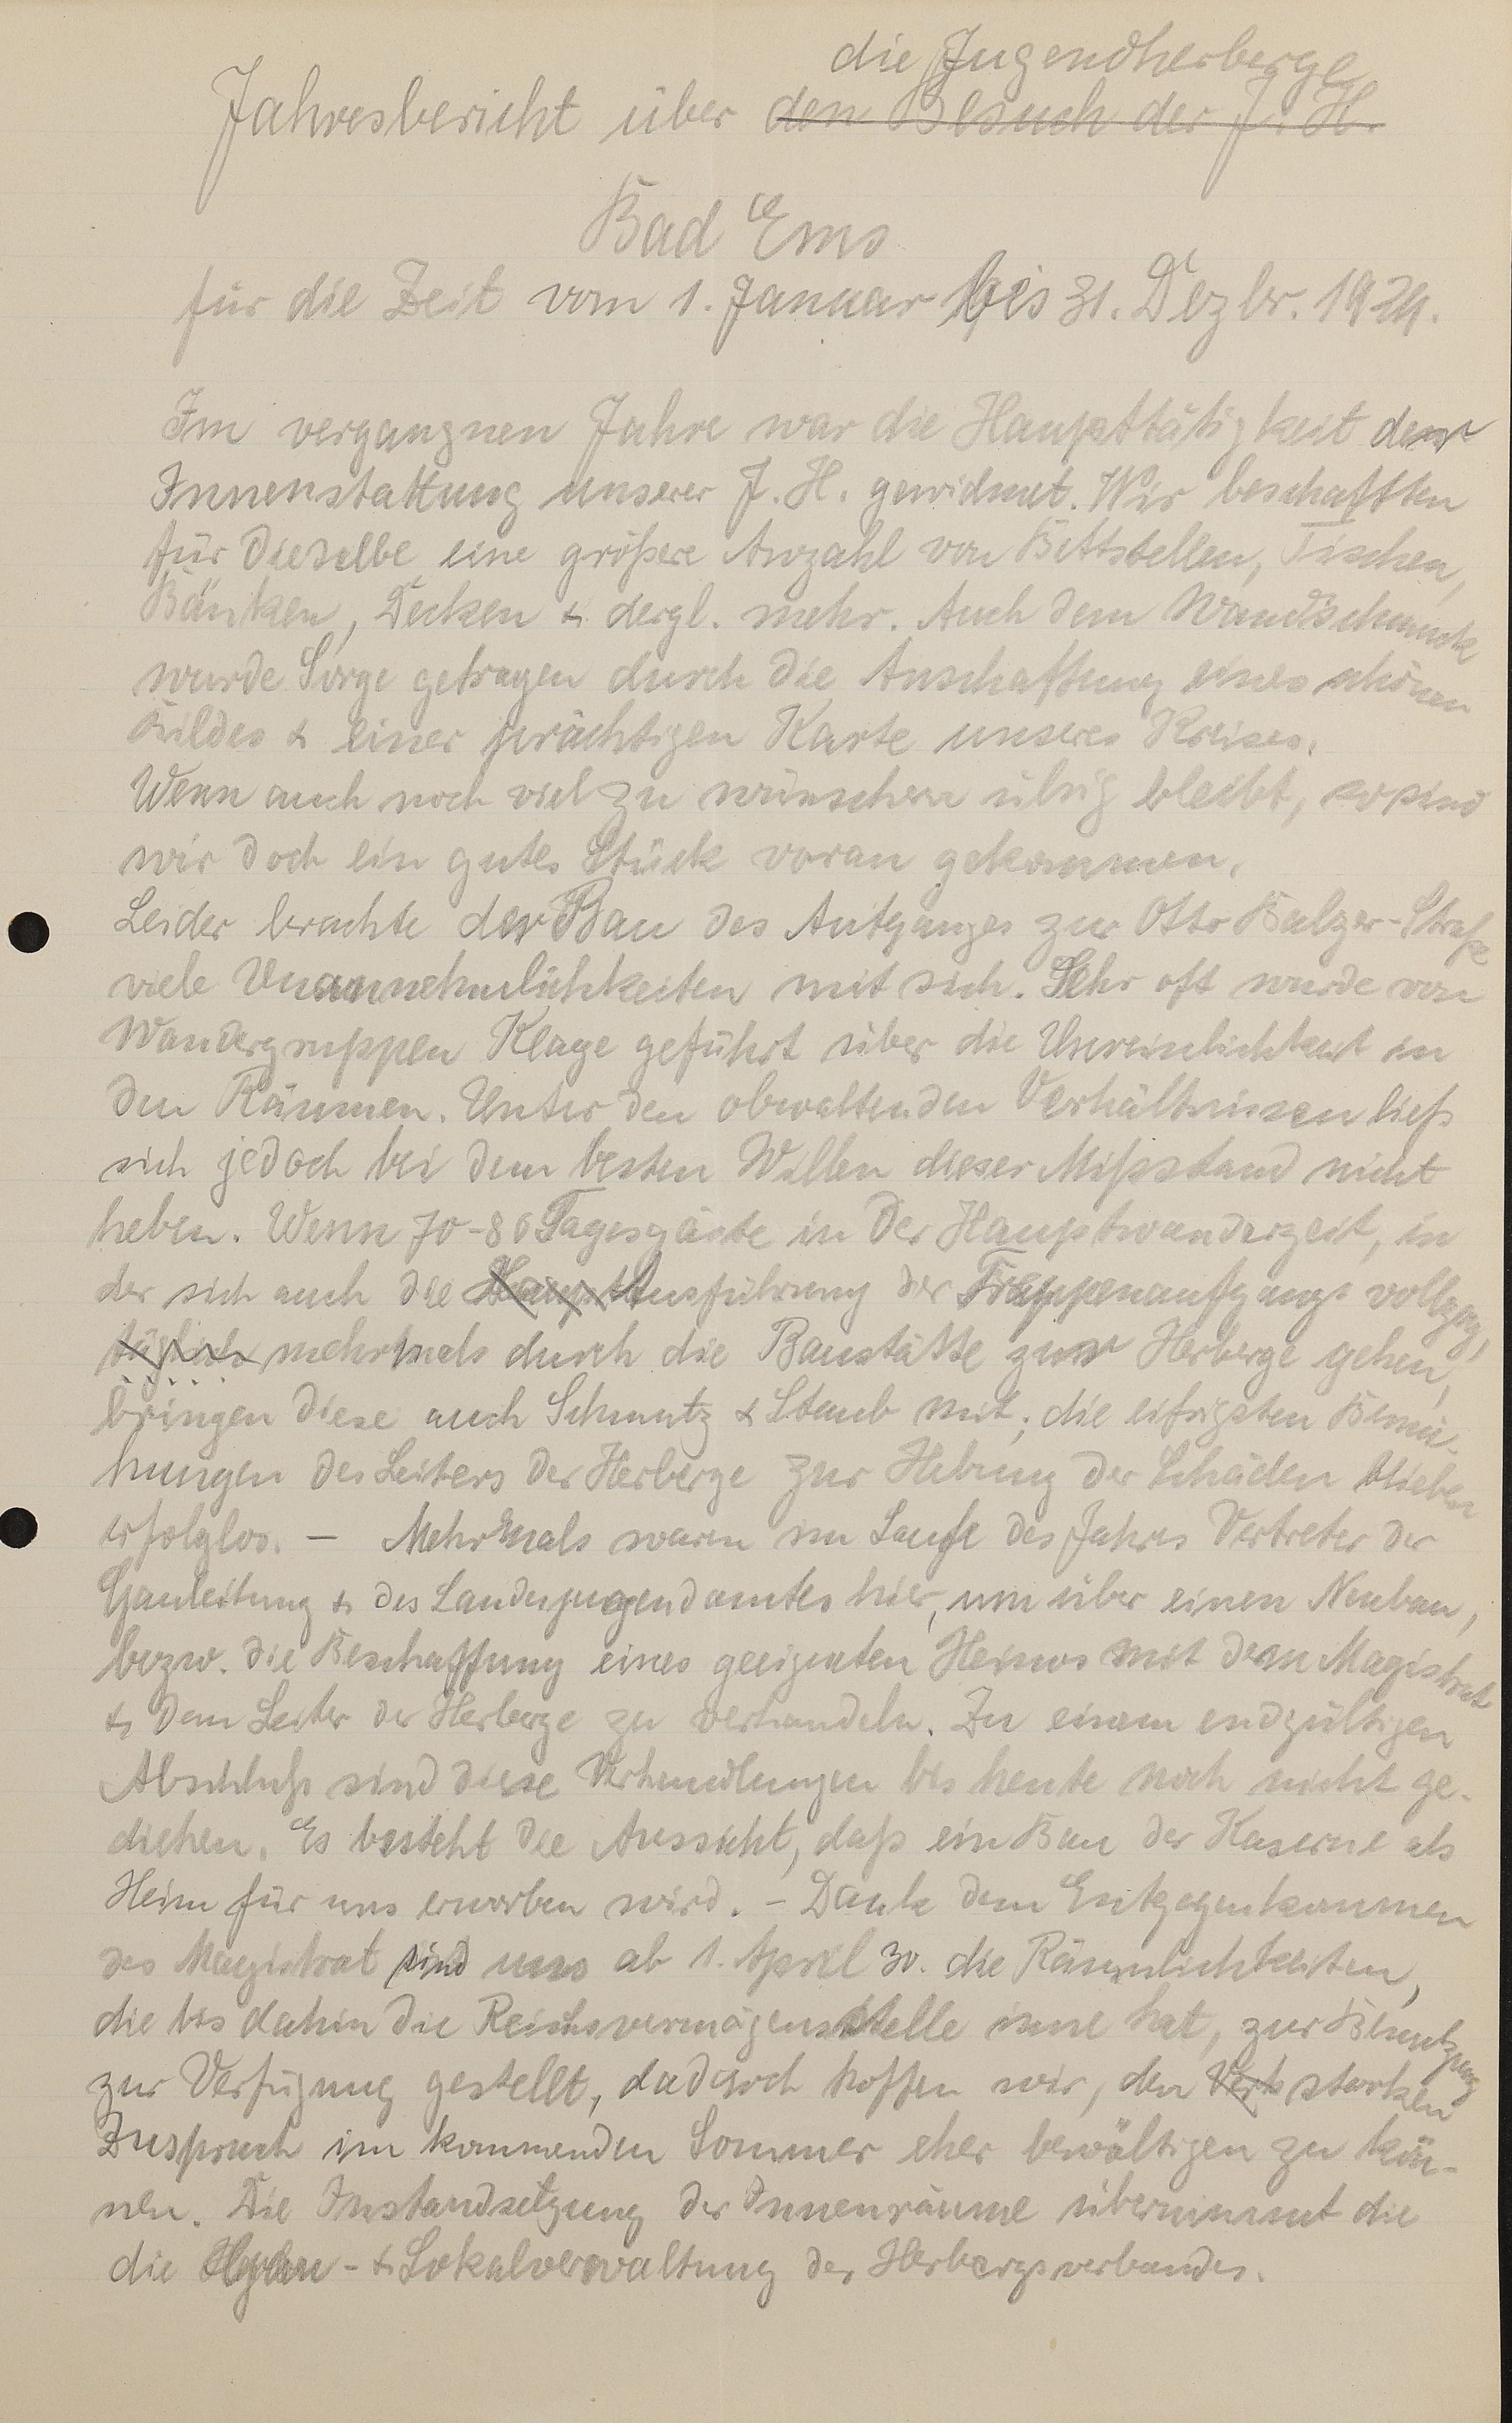 die Jugendherberge
Jahresbericht über den Besuch der J. H.
Bad Ems
für die Zeit vom 1. Januar bis 31. Dezbr. 1929.
Im vergangnen Jahre war die Haupttätigkeit der
Innenstattung unserer J. H. gewidmet. Wir beschafften
für dieselbe eine größere Anzahl von Bettstellen, Tischen,
Bänken, Decken & dergl. mehr. Auch dem Wandschmuck
wurde Sorge getragen durch die Anschaffung eines schönen
Bildes & einer prächtigen Karte unseres Kreises.
Wenn auch noch viel zu wünschen übrig bleibt, so sind
wir doch ein gutes Stück voran gekommen.
Leider brachte der Bau des Aufganges zur Otto Balzer-Straße
viele Unannehmlichkeiten mit sich. Sehr oft wurde von
Wandergruppen Klage geführt über die Unreinlichkeit in
den Räumen. Unter den obwaltenden Verhältnissen ließ
sich jedoch bei dem besten Willen dieser Mißstand nicht
heben. Wenn 70-80 Tagesgäste in der Hauptwanderzeit, in
der sich auch die Haupt Ausführung der Treppenaufgangs vollzog,
täglich mehrmals durch die Baustätte zur Herberge gehen,
bringen diese auch Schmutz & Staub mit; die eifrigsten Bemü-
hungen des Leiters der Herberge zur Hebung der Schäden blieben
erfolglos. — Mehrmals waren im Laufe des Jahres Vertreter der
Gauleitung & des Landesjugendamtes hier, um über einen Neubau,
bezw. die Beschaffung eines geeigneten Heimes mit dem Magistrat
& dem Leiter der Herberge zu verhandeln. Zu einem endgültigen
Abschluß sind diese Verhandlungen bis heute noch nicht ge-
diehen. Es besteht die Aussicht, daß ein Bau der Kaserne als
Heim für uns erworben wird. - Dank dem Entgegenkommen
des Magistrat sind uns ab 1. April 30. die Räumlichkeiten,
die bis dahin die Reichsvermögensstelle inne hat, zur Benutzung
zur Verfügung gestellt, dadurch hoffen wir, den starken
Zuspruch im kommenden Sommer eher bewältigen zu kön-
nen. Die Instandsetzung der Innenräume übernimmt die
die - & Lokalverwaltung des Herbergsverbandes.